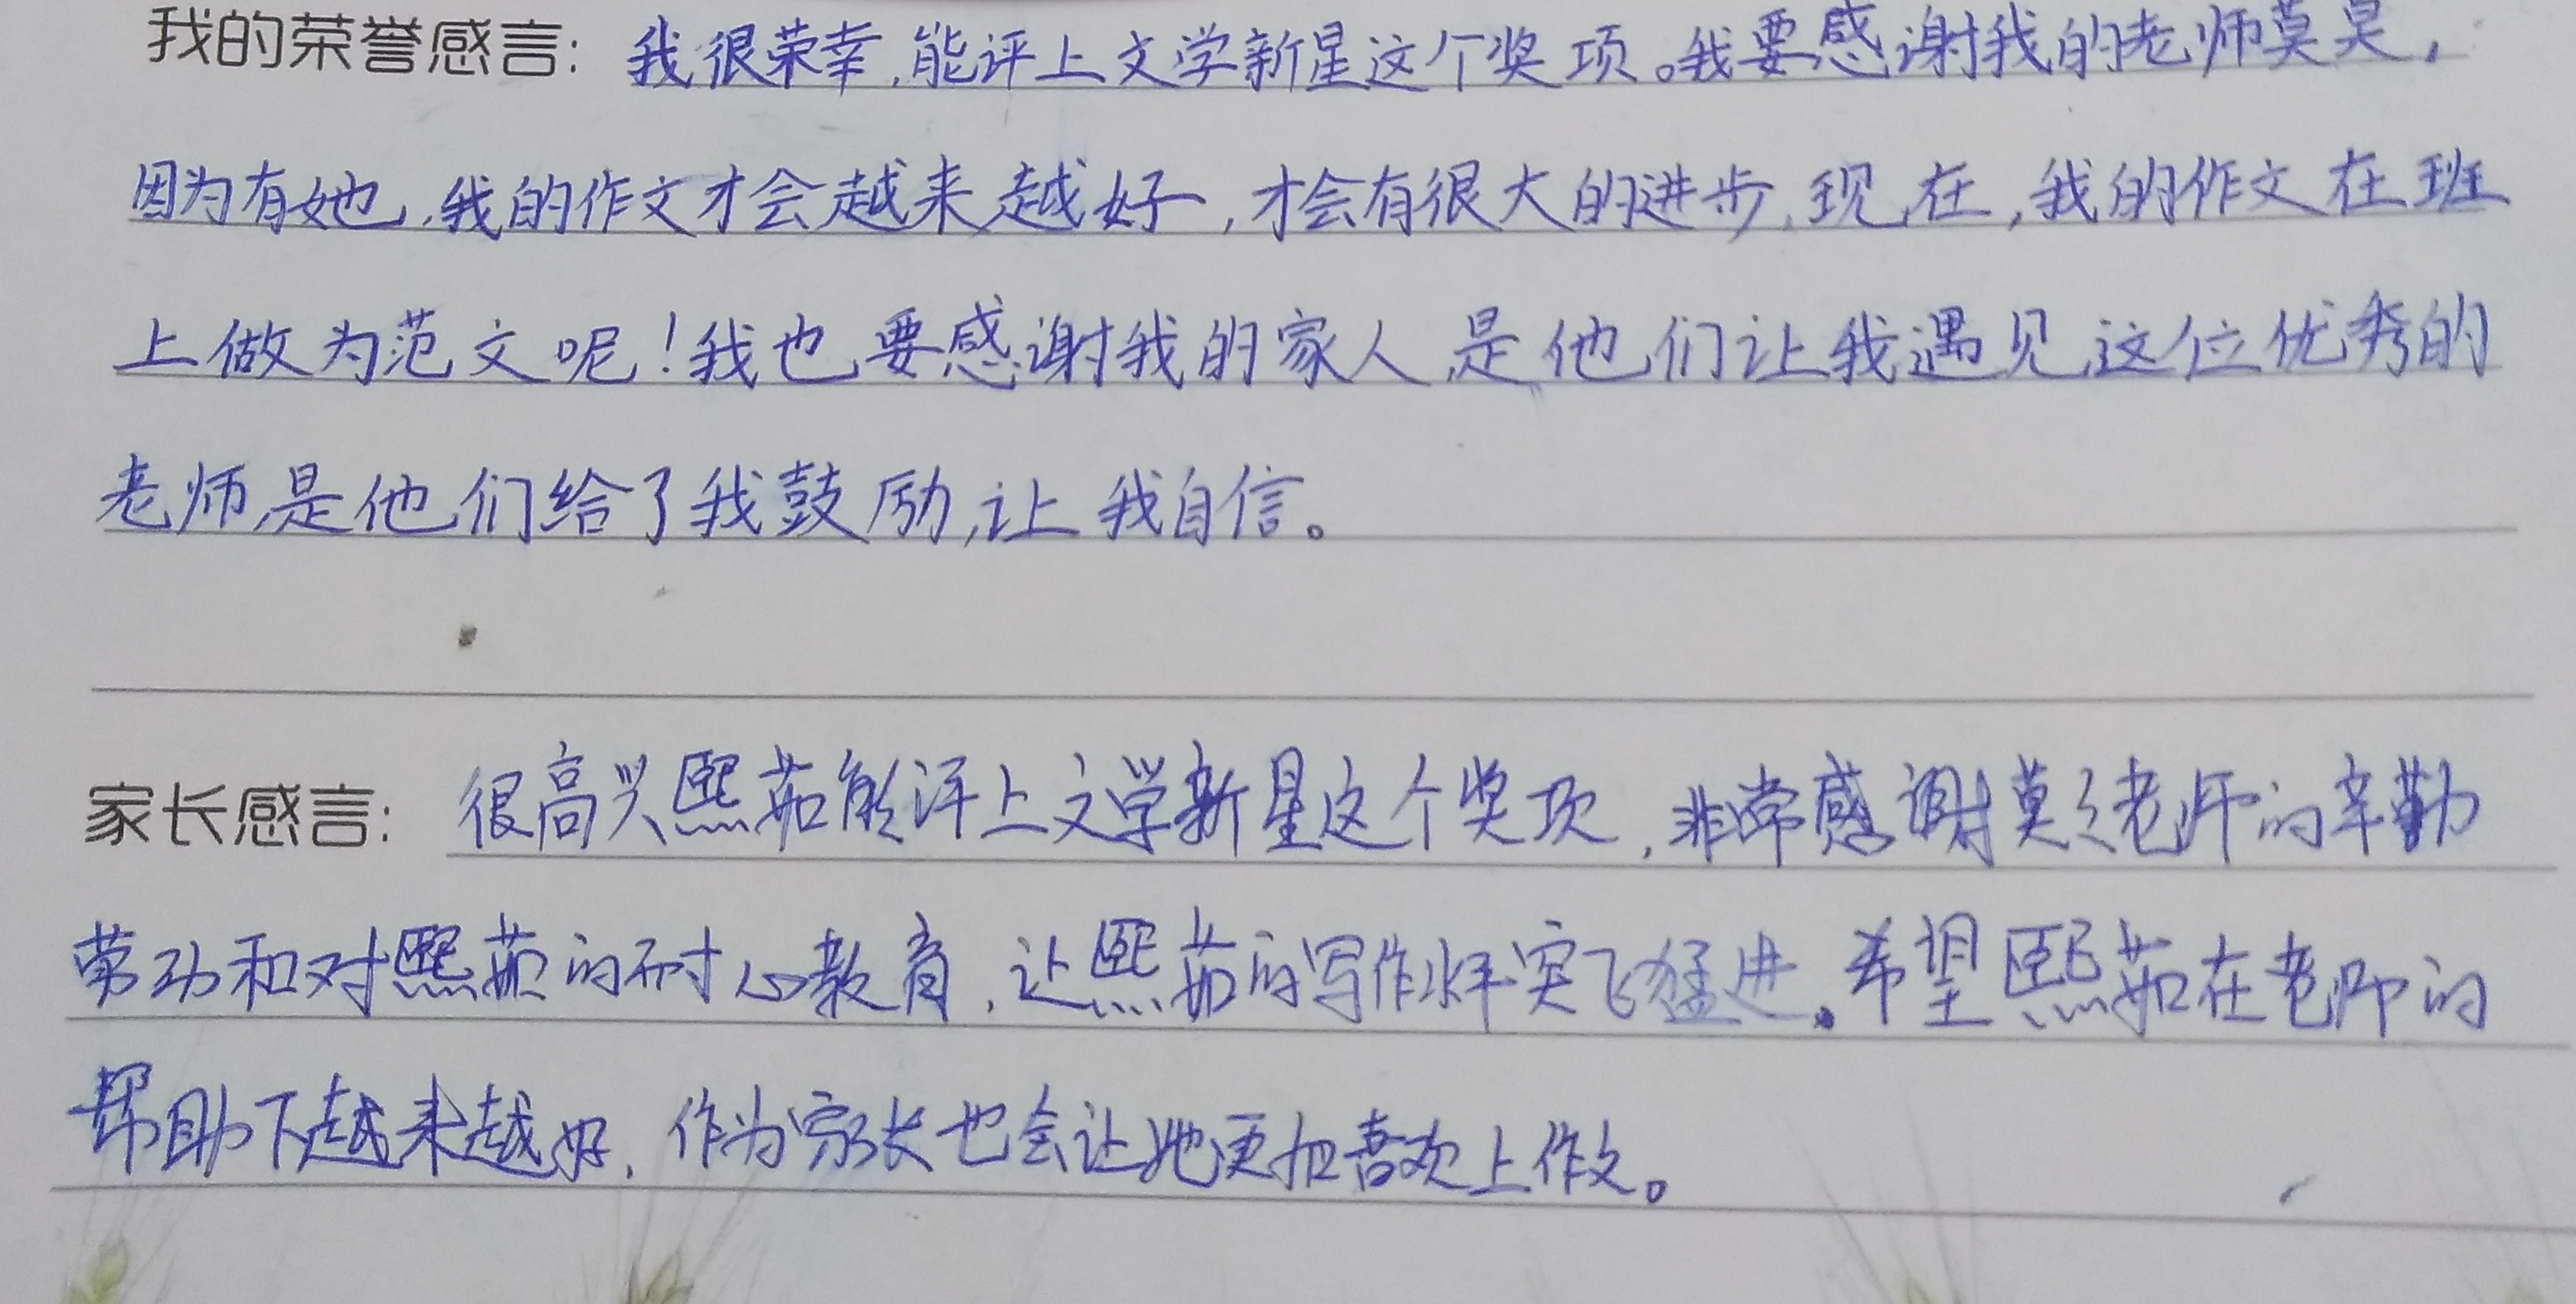 我的荣誉感言：我很荣幸，能评上文学新星这个奖项。我要感谢我的老师莫莫，
因为有她，我的作文才会越来越好，才会有很大的进步，现在，我的作文在班
上做为范文呢！我也要感谢我的家人，是他们让我遇见这位优秀的
老师，是他们给了我鼓励，让我自信。
家长感言：很高兴熙茹能评上文学新星这个奖项，非常感谢莫々老师的辛勤
劳动和对熙茹的耐心教育，让熙茹的写作水平突飞猛进。希望熙茹在老师的
帮助下越来越好，作为家长也会让她更加喜欢上作文。